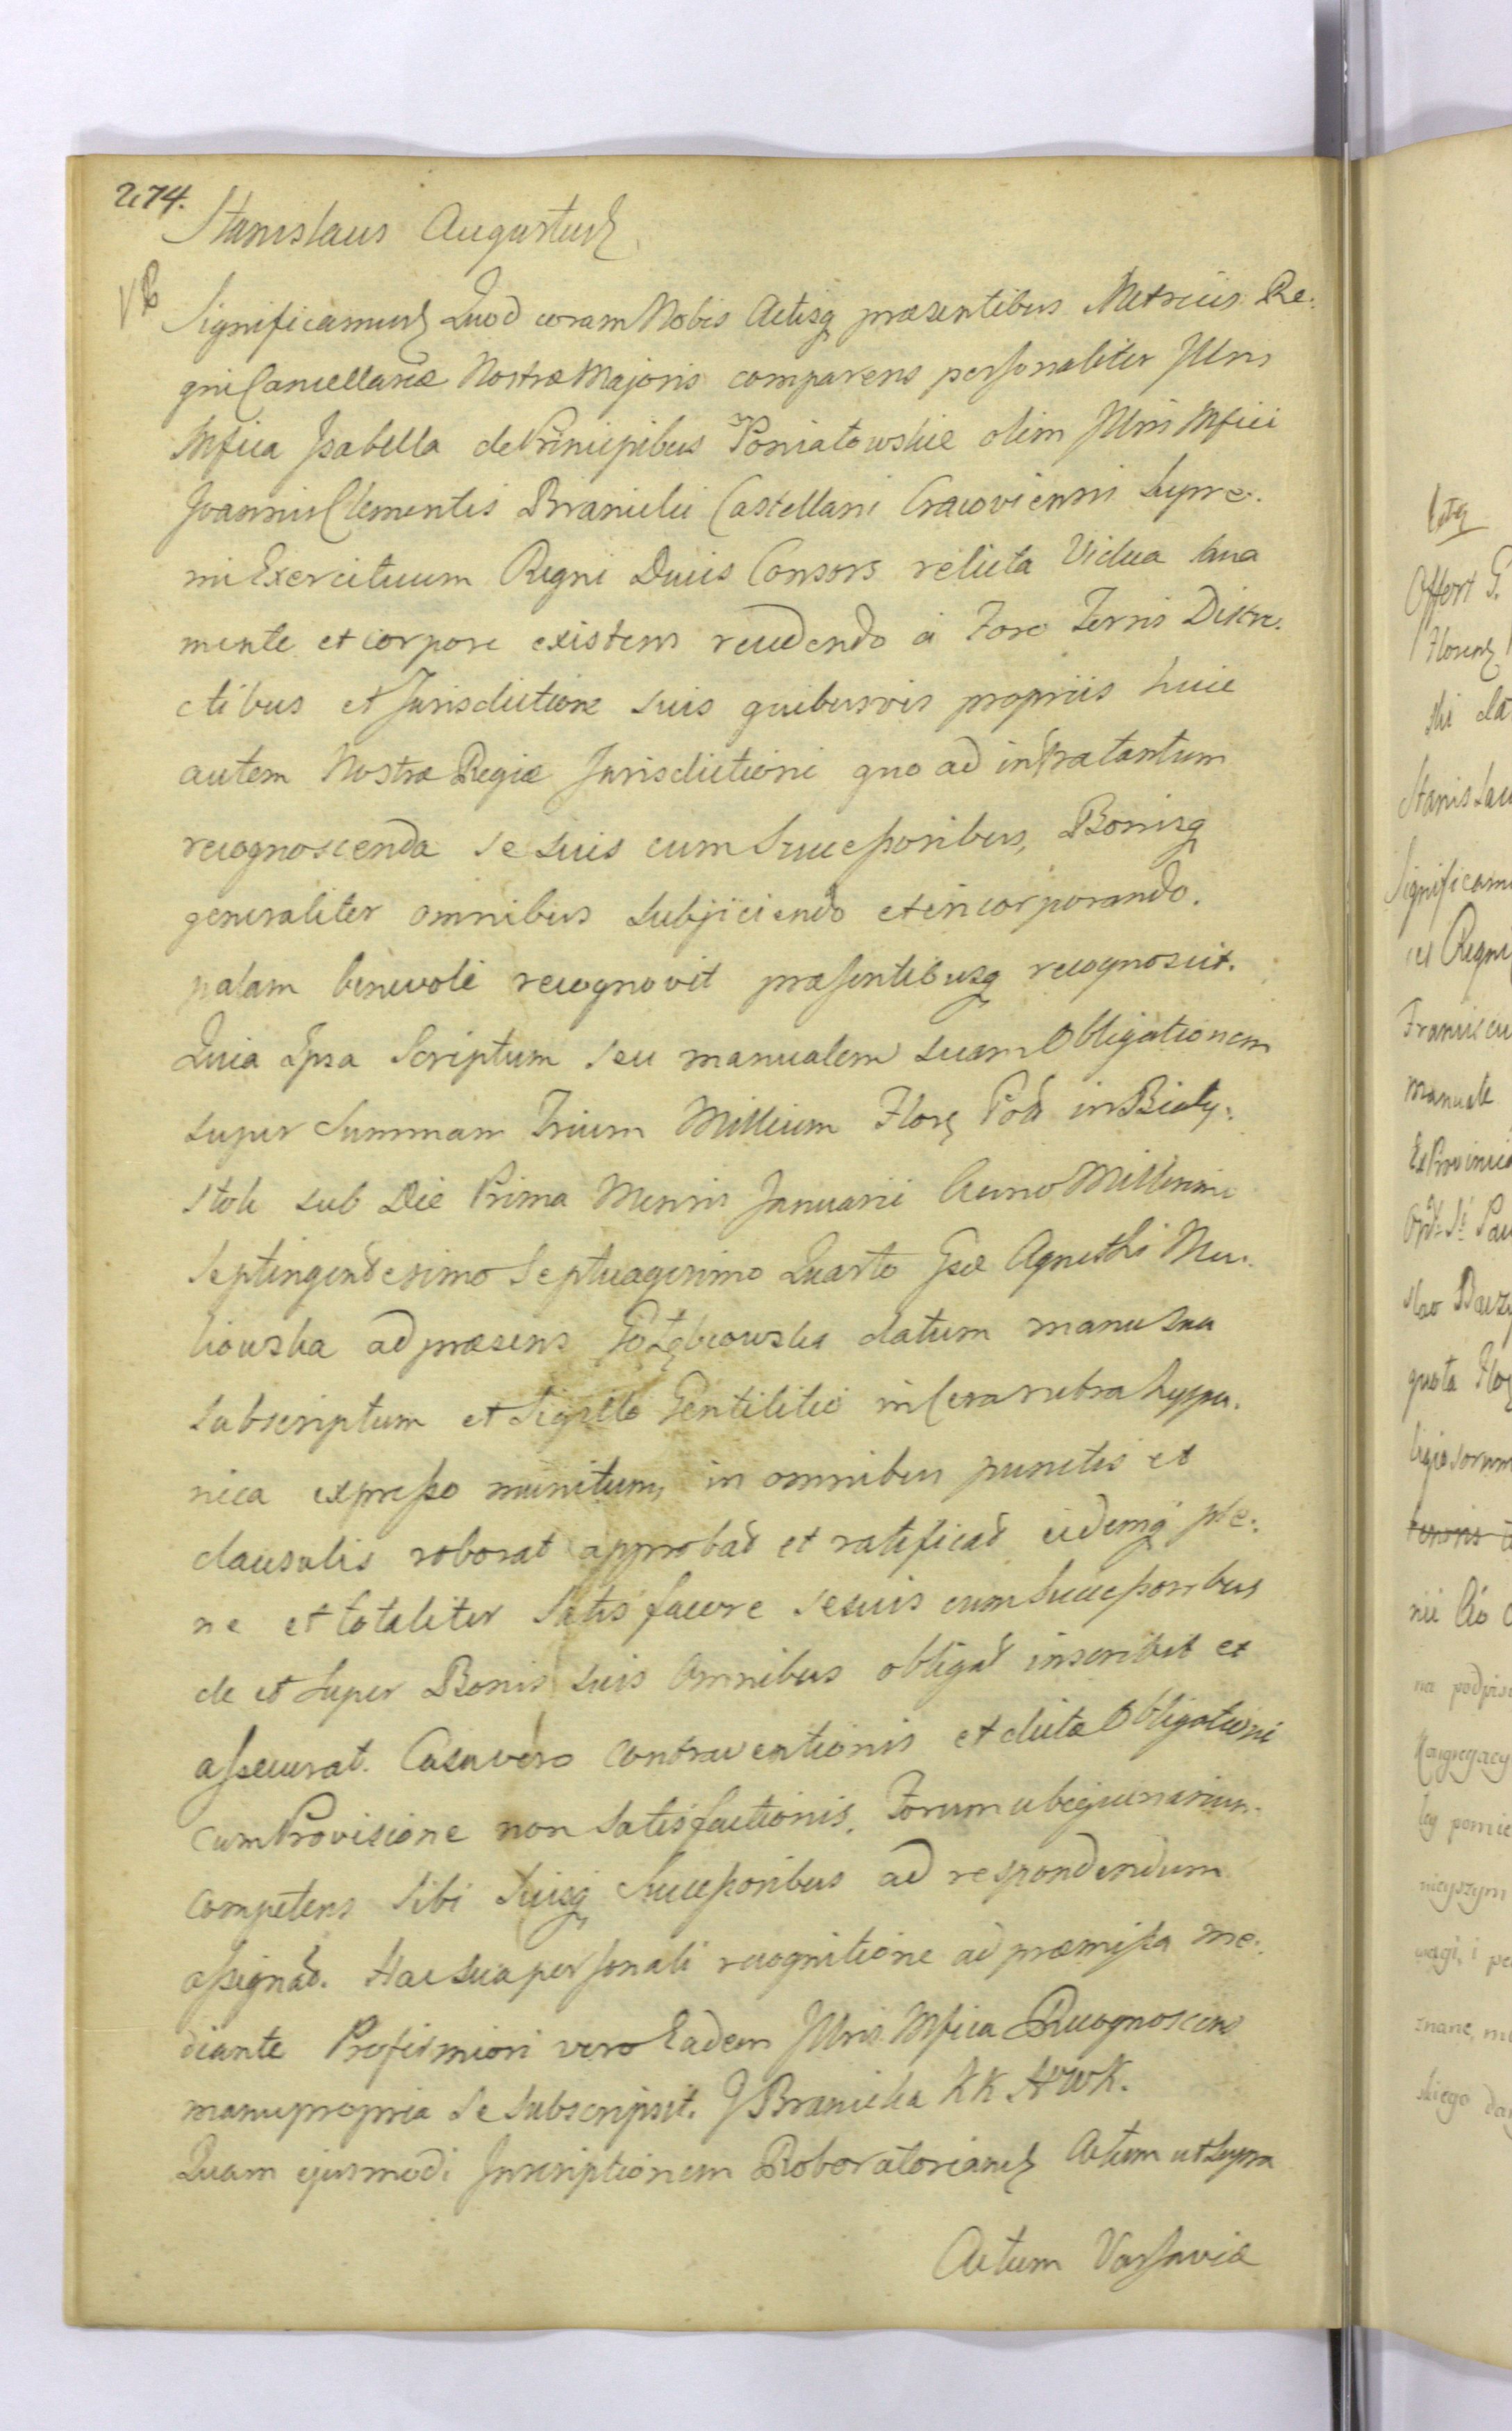 274.
Stanislaus Augustus
VB
Significamus Quod coram Nobis Actisq praesentibus Metricis Re:
gni Cancellariae Nostrae Majoris comparens personaliter Illris
Mfica Isabella de Principibus Poniatowskie olim Illris Mfici
Joannis Clementis Branicki Castellani Cracoviensis Supre:
mi Exercituum Regni Ducis Consors relicta Vidua sana
mente et corpore existens recedendo à Foro Terris Distri:
ctibus et Jurisdictione suis quibusvis propriis huic
autem Nostrae Regiae Jurisdictioni quo ad infra tantum
recognoscenda se suis cum Successoribus, Bonisq
generaliter omnibus subjiciendo et incorporando.
palam benevolè recognovit praesentibusq recognoscit.
Quia Ipsa Scriptum seu manualem suam Obligationem
super Summam Trium Millium Flor Pol in Biały:
stok sub Die Prima Mensis Januarii Anno Millesimo
Septingentesimo Septuagesimo Quarto Gsae Agnethi
ad praesens datum manu sua
subscriptum et Sigillo Gentilitio in Cera rubra hyspa:
nica expresso munitum, in omnibus punctis et
clausulis roborat approbat et ratificat eidemq ple:
ne et totaliter Satisfacere se suis cum Successoribus
de et super Bonis suis Omnibus obligat inscribit et
assecurat. Casu vero contraventionis et dictae Obligationi
cum Provisione non Satisfactionis, Forum ubiquinarium
competens Sibi Suisq Successoribus ad respondendum
assignat. Hac sua personali recognitione ad praemissa me:
diante Pro firmiori vero Eadem Illris Mfica Recognoscens
manu propria Se Subscripsit. J Branicka KK HWK.
Quam ejusmodi Inscriptionem Roboratoriam Actum ut supra
Actum Varsaviae